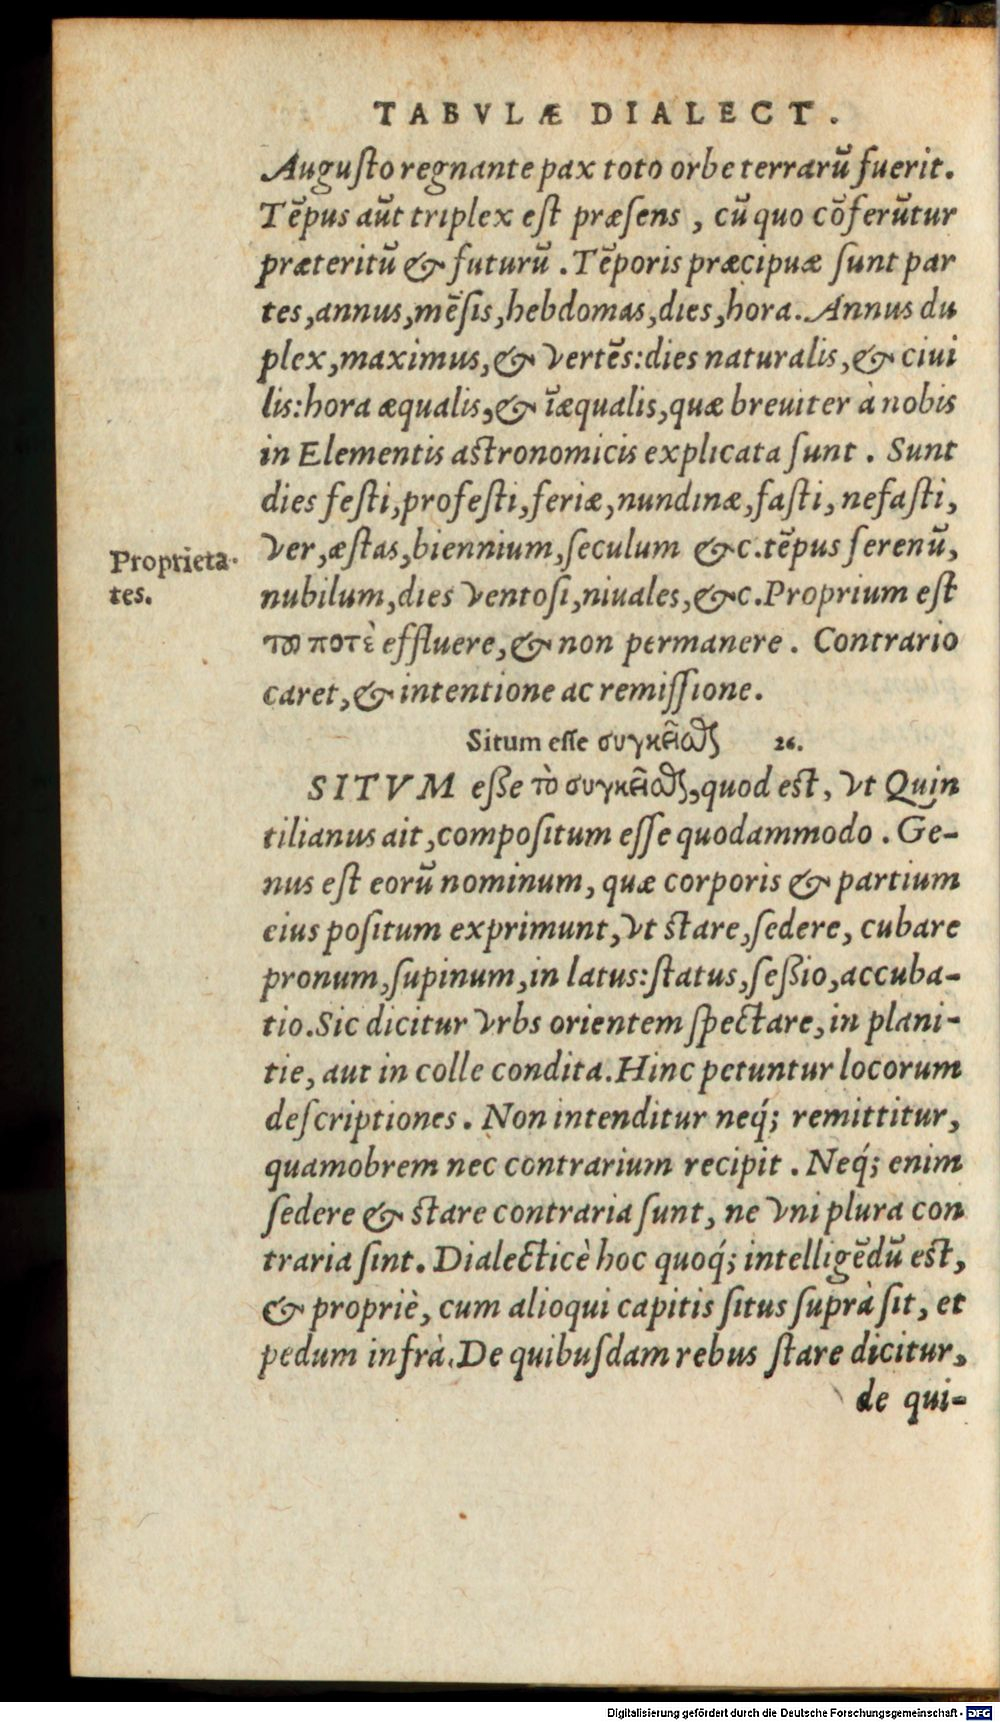 TABVLÆ DIALECT.
Auguſto regnante pax toto orbe terrarū fuerit.
Tēpus aūt triplex eſt præſens, cū quo cōferūtur
præteritū & futurū. Tēporis præcipuæ ſunt par
tes, annus, mēſis, hebdomas, dies, hora. Annus du
plex, maximus, & vertēs: dies naturalis, & ciui
lis: hora æqualis, & īæqualis, quæ breuiter à nobis
in Elementis aſtronomicis explicata ſunt. Sunt
dies feſti, profeſti, feriæ, nundinæ, faſti, nefaſti,
Proprieta-
tes.
Ver, æſtas, biennium, ſeculum &c. tēpus ſerenū,
nubilum, dies ventoſi, niuales, &c. Proprium eſt
τȣ ποτὲ effluere, & non permanere. Contrario
caret, & intentione ac remiſſione.
Situm eſſe συγκεῖσθαι 26.
SITVM eſse τὸ συγκεῖσθαι, quod est, vt Quin
tilianus ait, compoſitum eſſe quodammodo. Ge-
nus eſt eorū nominum, quæ corporis & partium
eius poſitum exprimunt, vt ſtare, ſedere, cubare
pronum, ſupinum, in latus: ſtatus, ſeßio, accuba-
tio. Sic dicitur vrbs orientem ſpectare, in plani-
tie, aut in colle condita. Hinc petuntur locorum
deſcriptiones. Non intenditur neq́; remittitur,
quamobrem nec contrarium recipit. Neq́; enim
ſedere & ſtare contraria ſunt, ne vni plura con
traria ſint. Dialecticè hoc quoq́; intelligēdū eſt,
& propriè, cum alioqui capitis ſitus ſuprà ſit, et
pedum infrà. De quibuſdam rebus ſtare dicitur,
de qui-
Digitalisierung gefördert durch die Deutsche Forschungsgemeinschaft - DFG